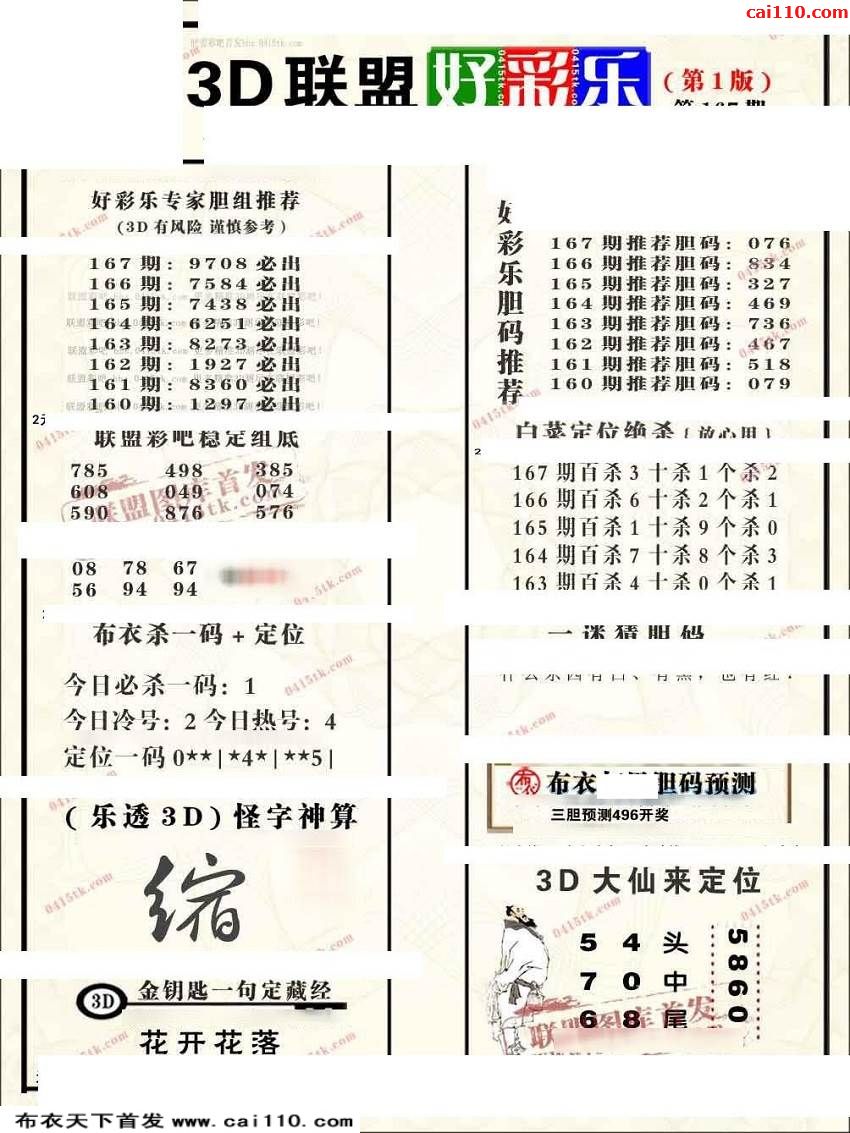 cai110.com
3D联盟好彩乐(第1版)
好彩乐专家胆组推荐
(3D有风险 谨慎参考)
167期: 9708必出
166期: 7584必出
165期: 7438必出
164期: 6251必出
163期: 8273必出
162期: 1927必出
161期: 8360必出
160期: 1297必出
联盟彩吧稳定组底
785 498 385
608 049 074
590 876 576
08 78 67
56 94 94
布衣杀一码+定位
今日必杀一码: 1
今日冷号: 2 今日热号: 4
定位一码 0**|*4*|**5|
(乐透3D)怪字神算
缩
3D 金钥匙一句定藏经
花开花落
好彩乐胆码推荐
167期推荐胆码: 076
166期推荐胆码: 834
165期推荐胆码: 327
164期推荐胆码: 469
163期推荐胆码: 736
162期推荐胆码: 467
161期推荐胆码: 518
160期推荐胆码: 079
白菜定位绝杀(放心用)
167期百杀3十杀1个杀2
166期百杀6十杀2个杀1
165期百杀1十杀9个杀0
164期百杀7十杀8个杀3
163期百杀4十杀0个杀1
一迷猜胆码
布衣 胆码预测
三胆预测496开奖
3D大仙来定位
5 4 头
7 0 中
6 8 尾
5860
联盟图库首发
0415tk.com
布衣天下首发 www.cai110.com